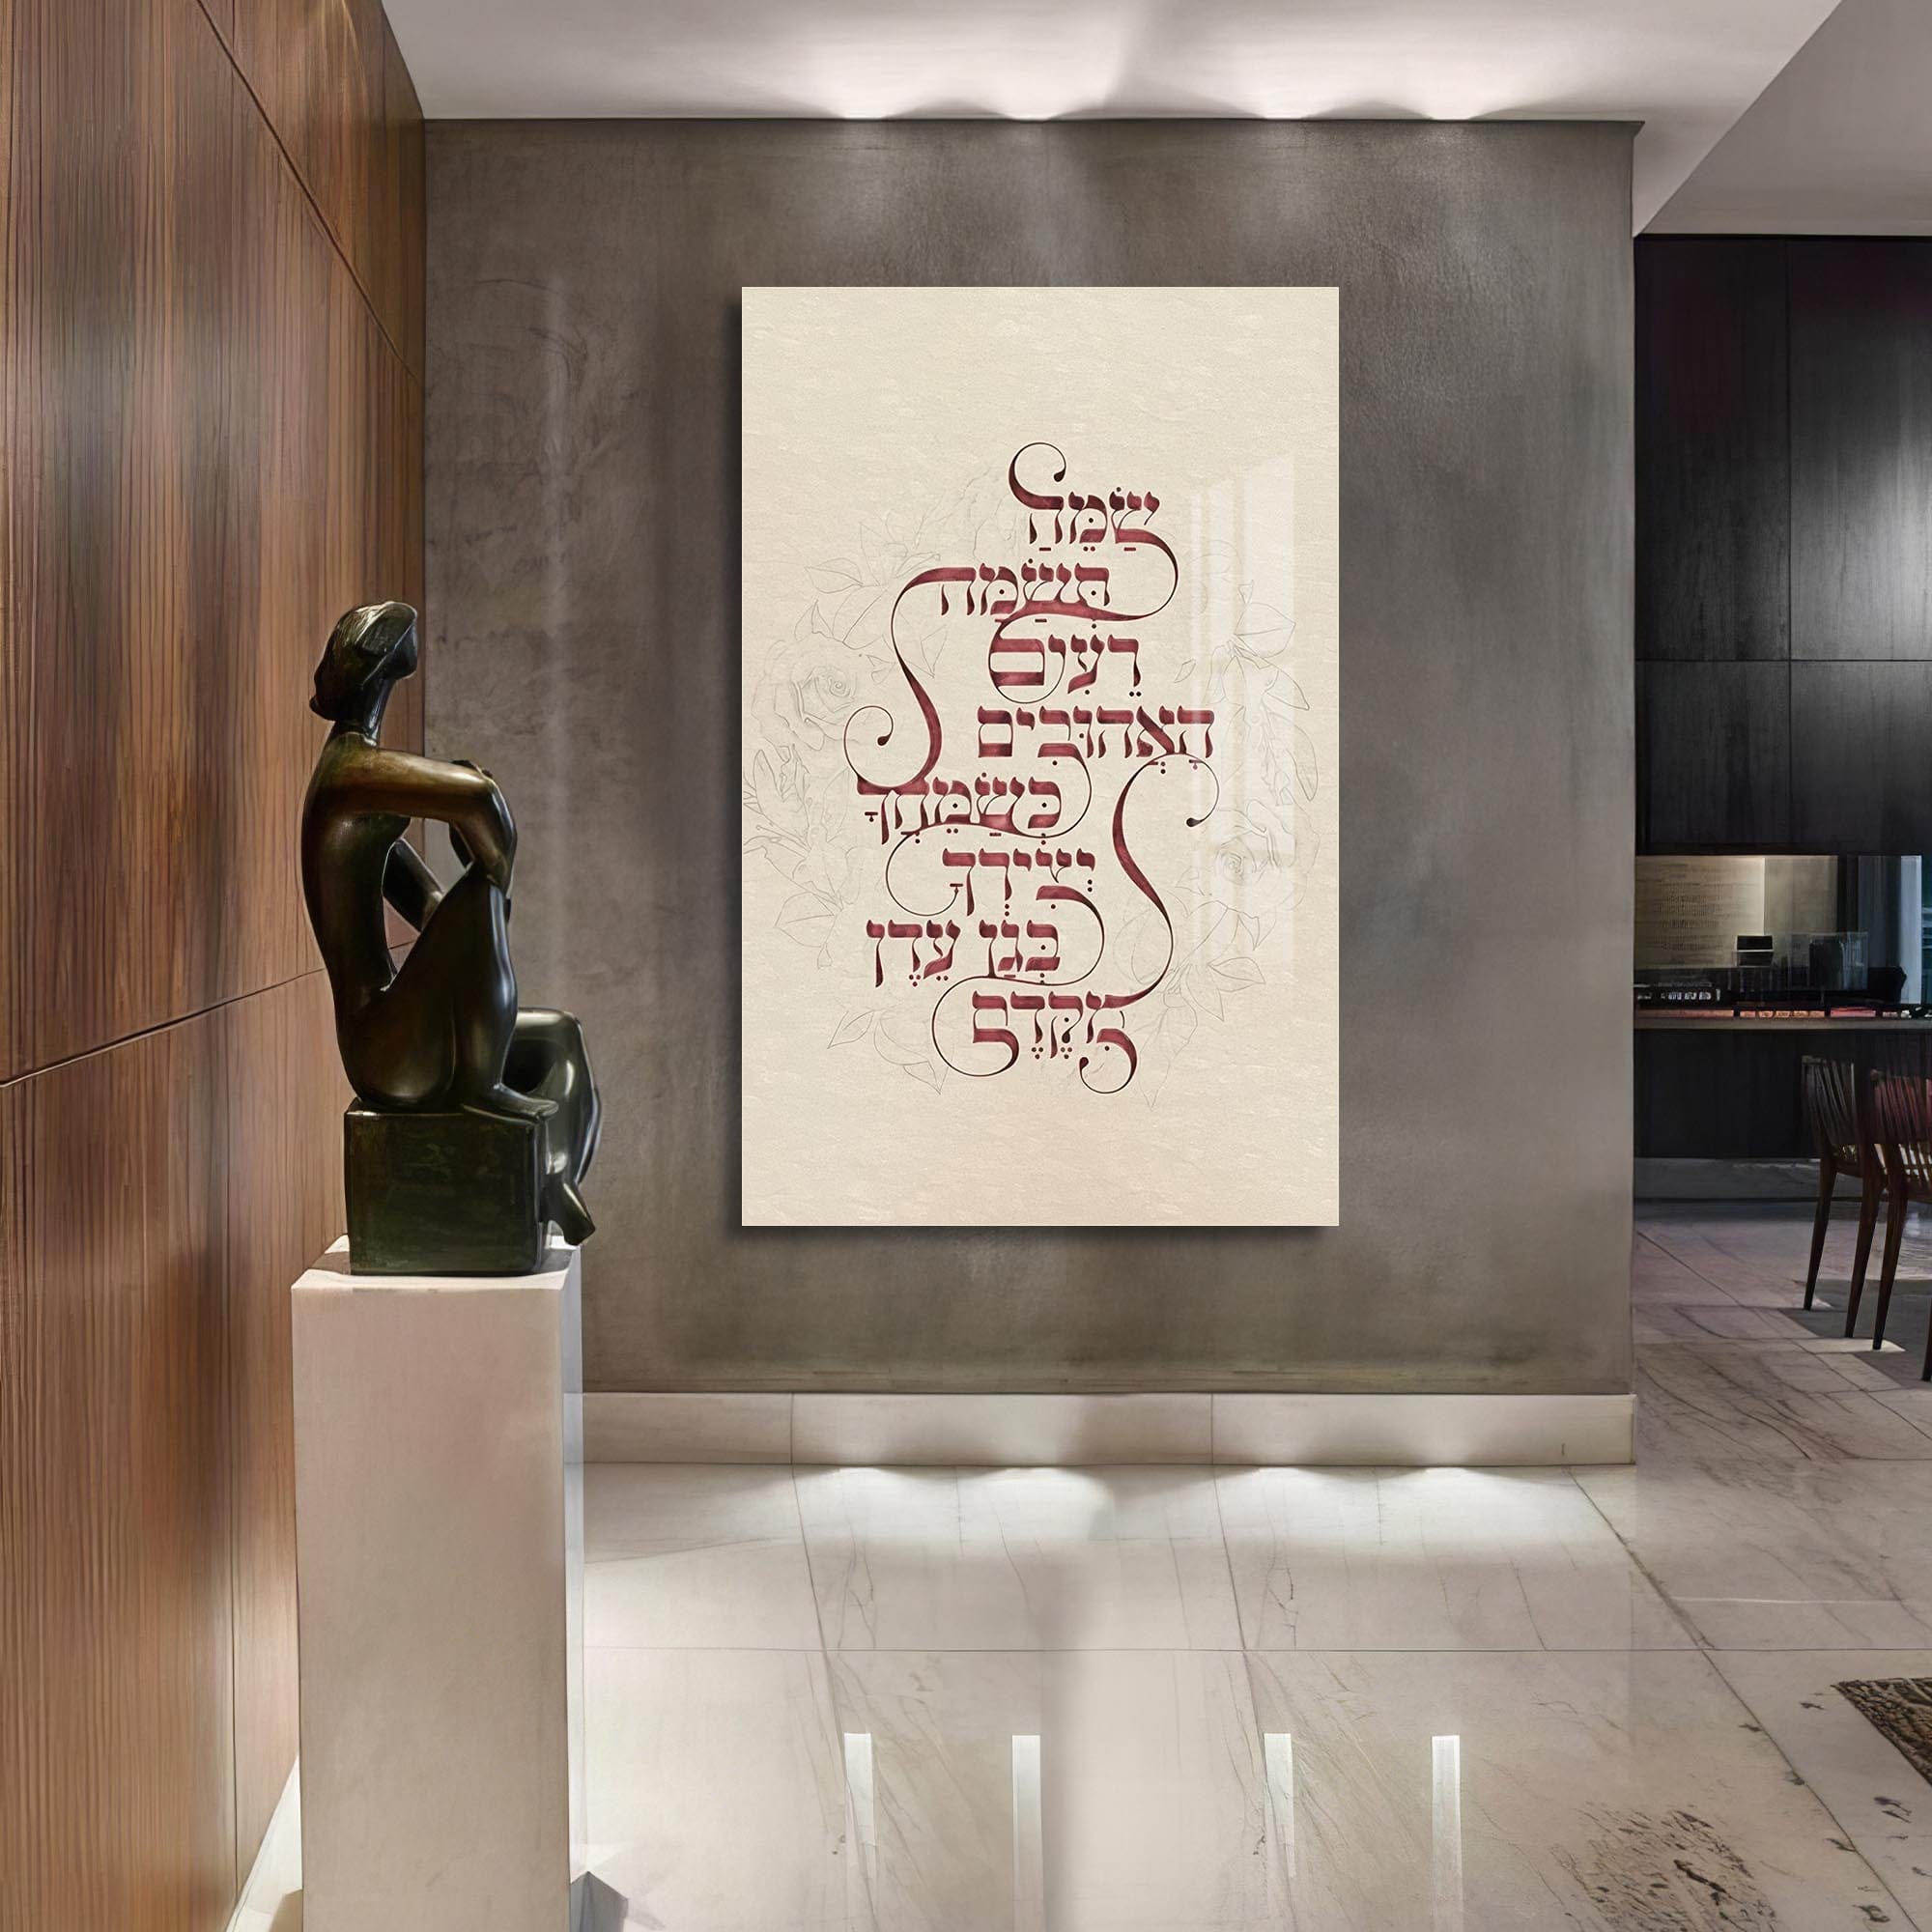 שַׂמֵּחַ
תְּשַׂמַּח
רֵעִים
הָאֲהוּבִים
כְּשַׂמֵּחֲךָ
יְצִירְךָ
בְּגַן עֵדֶן
מִקֶּדֶם